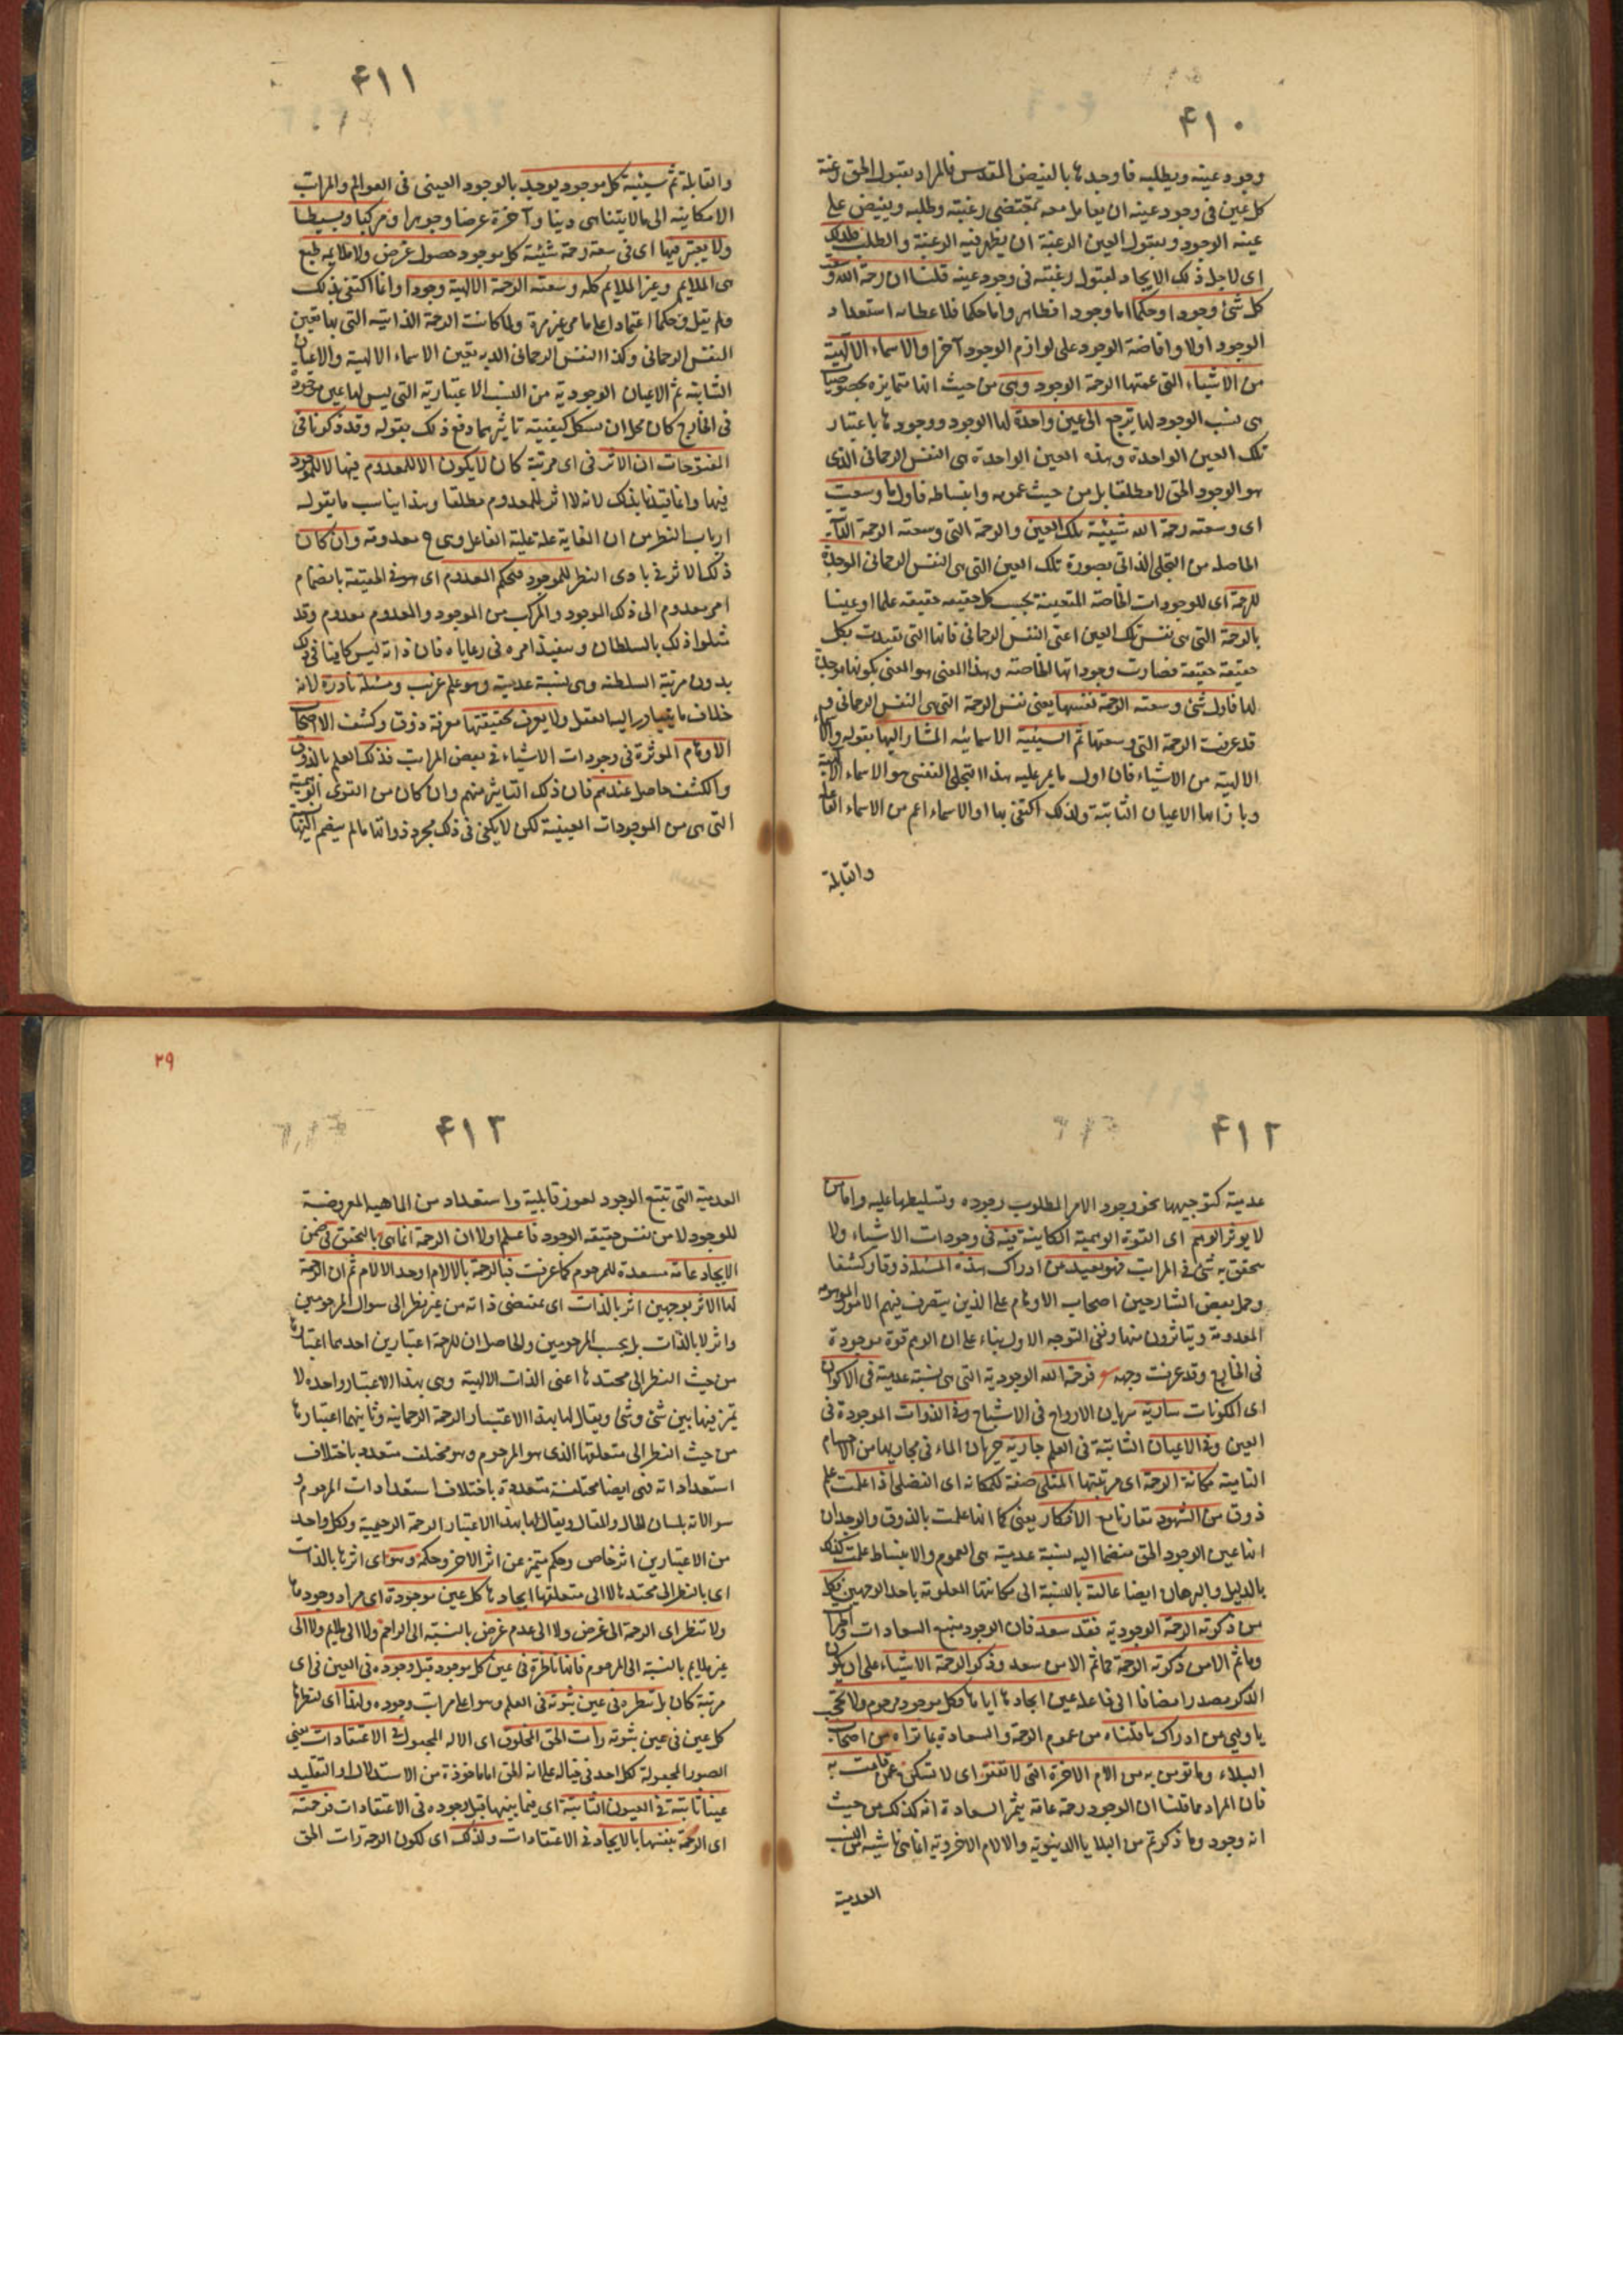 ٤١٠
وجود عينه ويطلبه فاوجدها بالفيض المقدس فالمراد بقبول الحق رغبة
كل عين فى وجود عينه ان يعامل معه بمقتضى رغبته وطلبه ويفيض على
عينه الوجود وبقبول العين الرغبة ان يظهر فيه الرغبة والطلب فلذلك
اى لاجل ذلك الايجاد لقبول رغبته فى وجود عينه قلنا ان رحمة الله وسعت
كل شئ وجودا وحكما اما وجودا فظاهر واما حكما فلاعطائه استعداد
الوجود اولا وافاضة الوجود على لوازم الوجود آخرا والاسماء الالهية
من الاشياء التى عمتها الرحمة الوجود وهى من حيث انها متمايزة بخصوصيا
هى نسب الوجود لها ترجع الى عين واحدة لها الوجود ووجودها باعتبار
تلك العين الواحدة وهذه العين الواحدة هى النفس الرحمانى الذى
هو الوجود الحق لا مطلقا بل من حيث عمومه وانبساطه فاول ما وسعت
اى وسعته رحمة الله شيئية تلك العين والرحمة التى وسعته الرحمة الذاتية
الحاصلة من التجلى الذاتى بصورة تلك العين التى هى النفس الرحمانى الموجدة
للرحمة اى للوجودات الخاصة المتعينة بحسب كل حقيقه حقيقه علما او عينا
بالرحمة التى هى نفس تلك العين اعنى النفس الرحمانى فانها التى تقيدت بكل
حقيقة حقيقة فصارت وجوداتها الخاصة وهذا المعنى هو المعنى بكونها موجدة
لها فاول شئ وسعته الرحمة نفسها يعنى نفس الرحمة التى هى النفس الرحمانى و
قد عرفت الرحمة التى وسعتها ثم الشيئية الاسمائيه المشار اليها بقوله والاسماء
الالهية من الاشياء فان اول ما يمر عليه هذا التجلى النفسى هو الاسماء الالهية
وبازائها الاعيان الثابتة ولذلك اكتفى بها او الاسماء اعم من الاسماء الفاعلة
والقابلة
٤١١
والقابلة ثم شيئية كل موجود يوجد بالوجود العينى فى العوالم والمراتب
الامكانيه الى ما لا يتناهى دنيا وآخرة عرضا وجوهرا ومركبا وبسيطا
ولا يعتبر فيها اى فى سعة رحمة شيئية كل موجود حصول غرض ولا ملايمه طبع
بل الملايم وغير الملايم كله وسعته الرحمة الالهية وجودا وانما اكتفى بذلك
فلم يقل وحكما اعتمادا على ما مر غير مرة ولما كانت الرحمة الذاتية التى بها تعين
النفس الرحمانى وكذا النفس الرحمانى الذى به تعين الاسماء الالهية والاعيان
الثابتة ثم الاعيان الوجودية من النسب الاعتبارية التى ليس لها عين موجودة
فى الخارج كان محل ان يشكل كيفيته تاثيرهما دفع ذلك بقوله وقد ذكرنا فى
الفتوحات ان الاثر فى اى مرتبة كان لا يكون الا للمعدوم فيها لا للموجود
فيها وانما قيدنا بذلك لانه لا اثر للمعدوم مطلقا وهذا يناسب ما يقوله
ارباب النظر من ان الغاية علة علية الفاعل وهى ح معدومة وان كان
ذلك الاثر فى بادى النظر للموجود فبحكم المعدوم اى هو فى الحقيقة بانضمام
امر معدوم الى ذلك الموجود والمركب من الموجود والمعدوم معدوم وقد
مثلوا ذلك بالسلطان وتنفيذ امره فى رعاياه فان ذاته ليس كافيا فى ذلك
بدون مرتبة السلطنه وهى نسبة عدمية وهو علم غريب ومسئلة نادرة لانه
خلاف ما يتبادر اليه العقل ولا يعرف تحقيقتها معرفة ذوق وكشف الا اصحاب
الاوهام المؤثرة فى وجودات الاشياء فى بعض المراتب فذلك العلم بالذوق
والكشف حاصل عندهم فان ذلك التاثير منهم وان كان من القوى الوهمية
التى هى من الموجودات العينية لكن لا يكفى فى ذلك مجرد ذواتها ما لم ينضم اليها
٤١٢
عدمية كتوجيهها نحو وجود الامر المطلوب وجوده وتسليطها عليه واما من
لا يوثر الوهم اى القوة الوهمية الكاينة فيه فى وجودات الاشياء ولا
يتحقق به شئ فى المراتب فهو بعيد من ادراك هذه المسئلة ذوقا وكشفا
وحمل بعض الشارحين اصحاب الاوهام على الذين يتصرف فيهم الامور الموهومة
المعدومة ويتاثرون منها ونفى التوجه الاول بناء على ان الوهم قوة موجودة
فى الخارج وقد عرفت وجهه فرحمة الله الوجودية التى هى نسبة عدمية فى الاكوان
اى المكونات سارية سريان الارواح فى الاشباح وفى الذوات الموجودة فى
العين وفى الاعيان الثابتة فى العلم جارية جريان الماء فى مجاريها من الاجسام
النامية مكانة الرحمة اى مرتبتها المثلى صفة للمكانه اى الفضلى اذا علمت علم
ذوق من الشهود تقارنا مع الافكار يعنى كما انها علمت بالذوق والوجدان
انها عين الوجود الحق منضما اليه نسبة عدمية هى العموم والانبساط علمت كذلك
بالدليل والبرهان ايضا عالية بالنسبة الى مكانتها المعلومة باحد الوجهين فكل
من ذكرته الرحمة الوجودية فقد سعد فان الوجود منبع السعادات والخيرات
وما ثم الا من ذكرته الرحمة فما ثم الا من سعد وذكر الرحمة الاشياء على ان يكون
الذكر مصدرا مضافا الى فاعله عين ايجادها اياها فكل موجود مرحوم ولا تحجب
يا وليى من ادراك ما قلناه من عموم الرحمة والسعادة بما تراه من اصحاب
البلاء وما تومن به من الام الاخرة التى لا تفتر اى لا تسكن عمن قامت به
فان المراد مما قلنا ان الوجود رحمة عامة يثمر السعادة انه كذلك من حيث
انه وجود وما ذكرتم من البلايا الدنيوية والالام الاخروية انما هى ناشية من النسب
العدمية
٤١٣
٢٩
العدمية التى تتبع الوجود لعوز قابلية واستعداد من الماهية المعروضة
للوجود لا من نفس حقيقه الوجود فاعلم اولا ان الرحمة انما هى بالتحقق فى ضمن
الايجاد عامة مسعدة للمرحوم كما عرفت فبالرحمة بالالام اوجد الالام ثم ان الرحمة
لها الاثر بوجهين اثر بالذات اى بمقتضى ذاته من غير نظر الى سوال المرحومين
واثر لا بالذات بل بحسب المرحومين والحاصل ان للرحمة اعتبارين احدهما اعتبارها
من حيث النظر الى محتدها اعنى الذات الالهية وهى بهذا الاعتبار واحدة لا
تميز فيها بين شئ وشئ ويقال لها بهذا الاعتبار الرحمة الرحمانية وثانيهما اعتبارها
من حيث النظر الى متعلقها الذى هو المرحوم وهو مختلف متعدد باختلاف
استعداداته فهى ايضا مختلفة متعددة باختلاف استعدادات المرحوم و
سوالاته بلسان الحال والمقال ويقال لها بهذا الاعتبار الرحمة الرحيمية ولكل واحد
من الاعتبارين اثر خاص وحكم متميز عن اثر الاخر وحكمه وهو اى اثرها بالذات
اى بالنظر الى محتدها لا الى متعلقها ايجادها كل عين موجودة اى مراد وجودها
ولا تنظر اى الرحمة الى غرض ولا الى عدم غرض بالنسبة الى الراحم ولا الى ملايم ولا الى
غير ملايم بالنسبة الى المرحوم فانها ناظرة فى عين كل موجود قبل وجوده فى العين فى اى
مرتبة كان بل تنظره فى عين ثبوته فى العلم وسوا على مراتب وجوده ولهذا اى لنظرها
كل عين فى عين ثبوته رات الحق المخلوق اى الاله المجعول فى الاعتقادات يعنى
الصور المجعولة لكل احد فى خياله على انه الحق اما ماخوذة من الاستدلال او التقليد
عينا ثابتة فى العيون الثابتة اى فيما بينها قبل وجوده فى الاعتقادات فرحمته
اى الرحمة بنفسها بالايجاد فى الاعتقادات ولذلك اى لكون الرحمة رات الحق